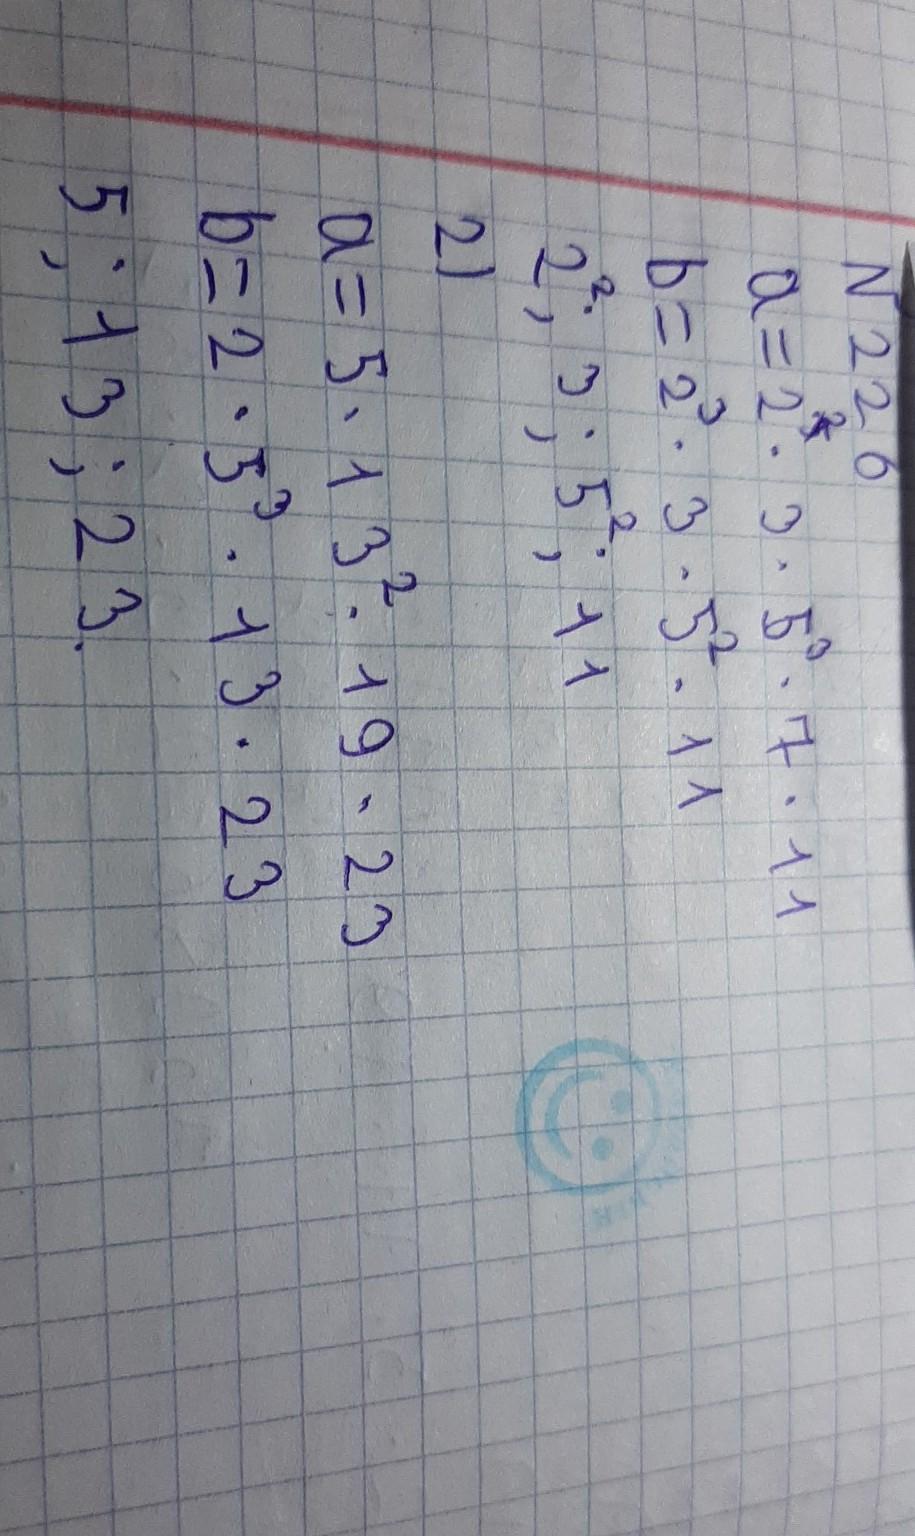 N 226
a = 2² · 3 · 5³ · 7 · 11
b = 2³ · 3 · 5² · 11
2²; 3; 5²; 11
2)
a = 5 · 13² · 19 · 23
b = 2 · 5³ · 13 · 23
5; 13; 23.